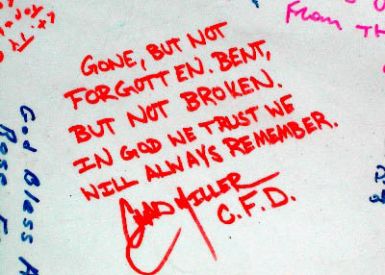 GONE, BUT NOT
FORGOTTEN. BENT,
BUT NOT BROKEN.
IN GOD WE TRUST WE
WILL ALWAYS REMEMBER.
CHAD MILLER
C.F.D.
From Th
God Bless A